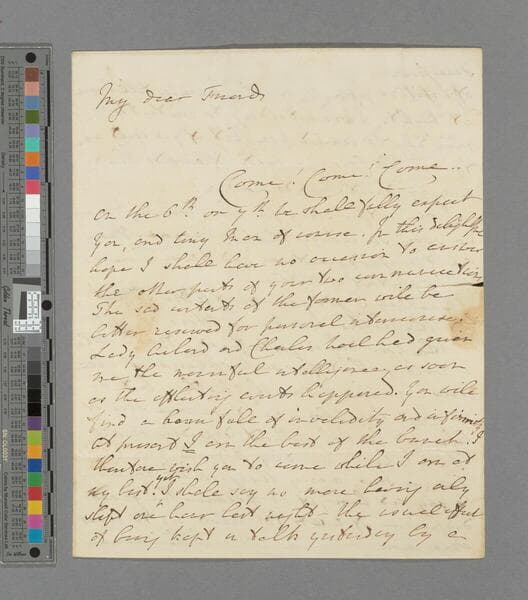 My dear Friend
Come! Come! Come..
On the 6th or 7th we shall fully expect
you, and tiny Man of course. In this delightful
hope I shall have no occasion to answer
the other parts of your two communications
The sad contents of the former will be
better reserved for personal intercourse.
Lady and Charles had given
me the mournful intelligence, as soon
as the afflicting events happened. You will
find a house full of invalidity and infirmity
At present I am the best of the bunch. I
therefore wish you to come while I am at
my best. I shall say no more having only
slept one hour last night - the usual effect
of being kept in talk yesterday by a